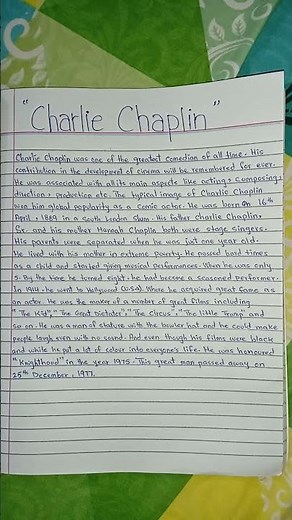 "Charlie Chaplin"
Charlie Chaplin was one of the greatest comedian of all time. His
contribution in the development of cinema will be remembered for ever.
He was associated with all its main aspects like acting, composing,
direction, production etc. The typical image of Charlie Chaplin
won him global popularity as a comic actor. He was born on 16th
April, 1889 in a south London slum. His father charlie Chaplin.
Sr. and his mother Hannah Chaplin both were stage singers.
His parents were separated when he was just one year old.
He lived with his mother in extreme poverty. He passed hard times
as a child and started giving musical performances. When he was only
5. By the time he turned eight, he had become a seasoned performer.
In 1914, he went to Hollywood (USA). Where he acquired great fame as
an actor. He was the maker of a number of great films including
"The Kid", "The Great Dictator", "The Circus", "The Little Tramp" and
so on. He was a man of stature with the bowler hat and he could make
people laugh even with no sound. And even though his films were black
and white he put a lot of colour into everyone's life. He was honoured
"Knighthood" in the year 1975. This great man passed away on
25th December, 1977.